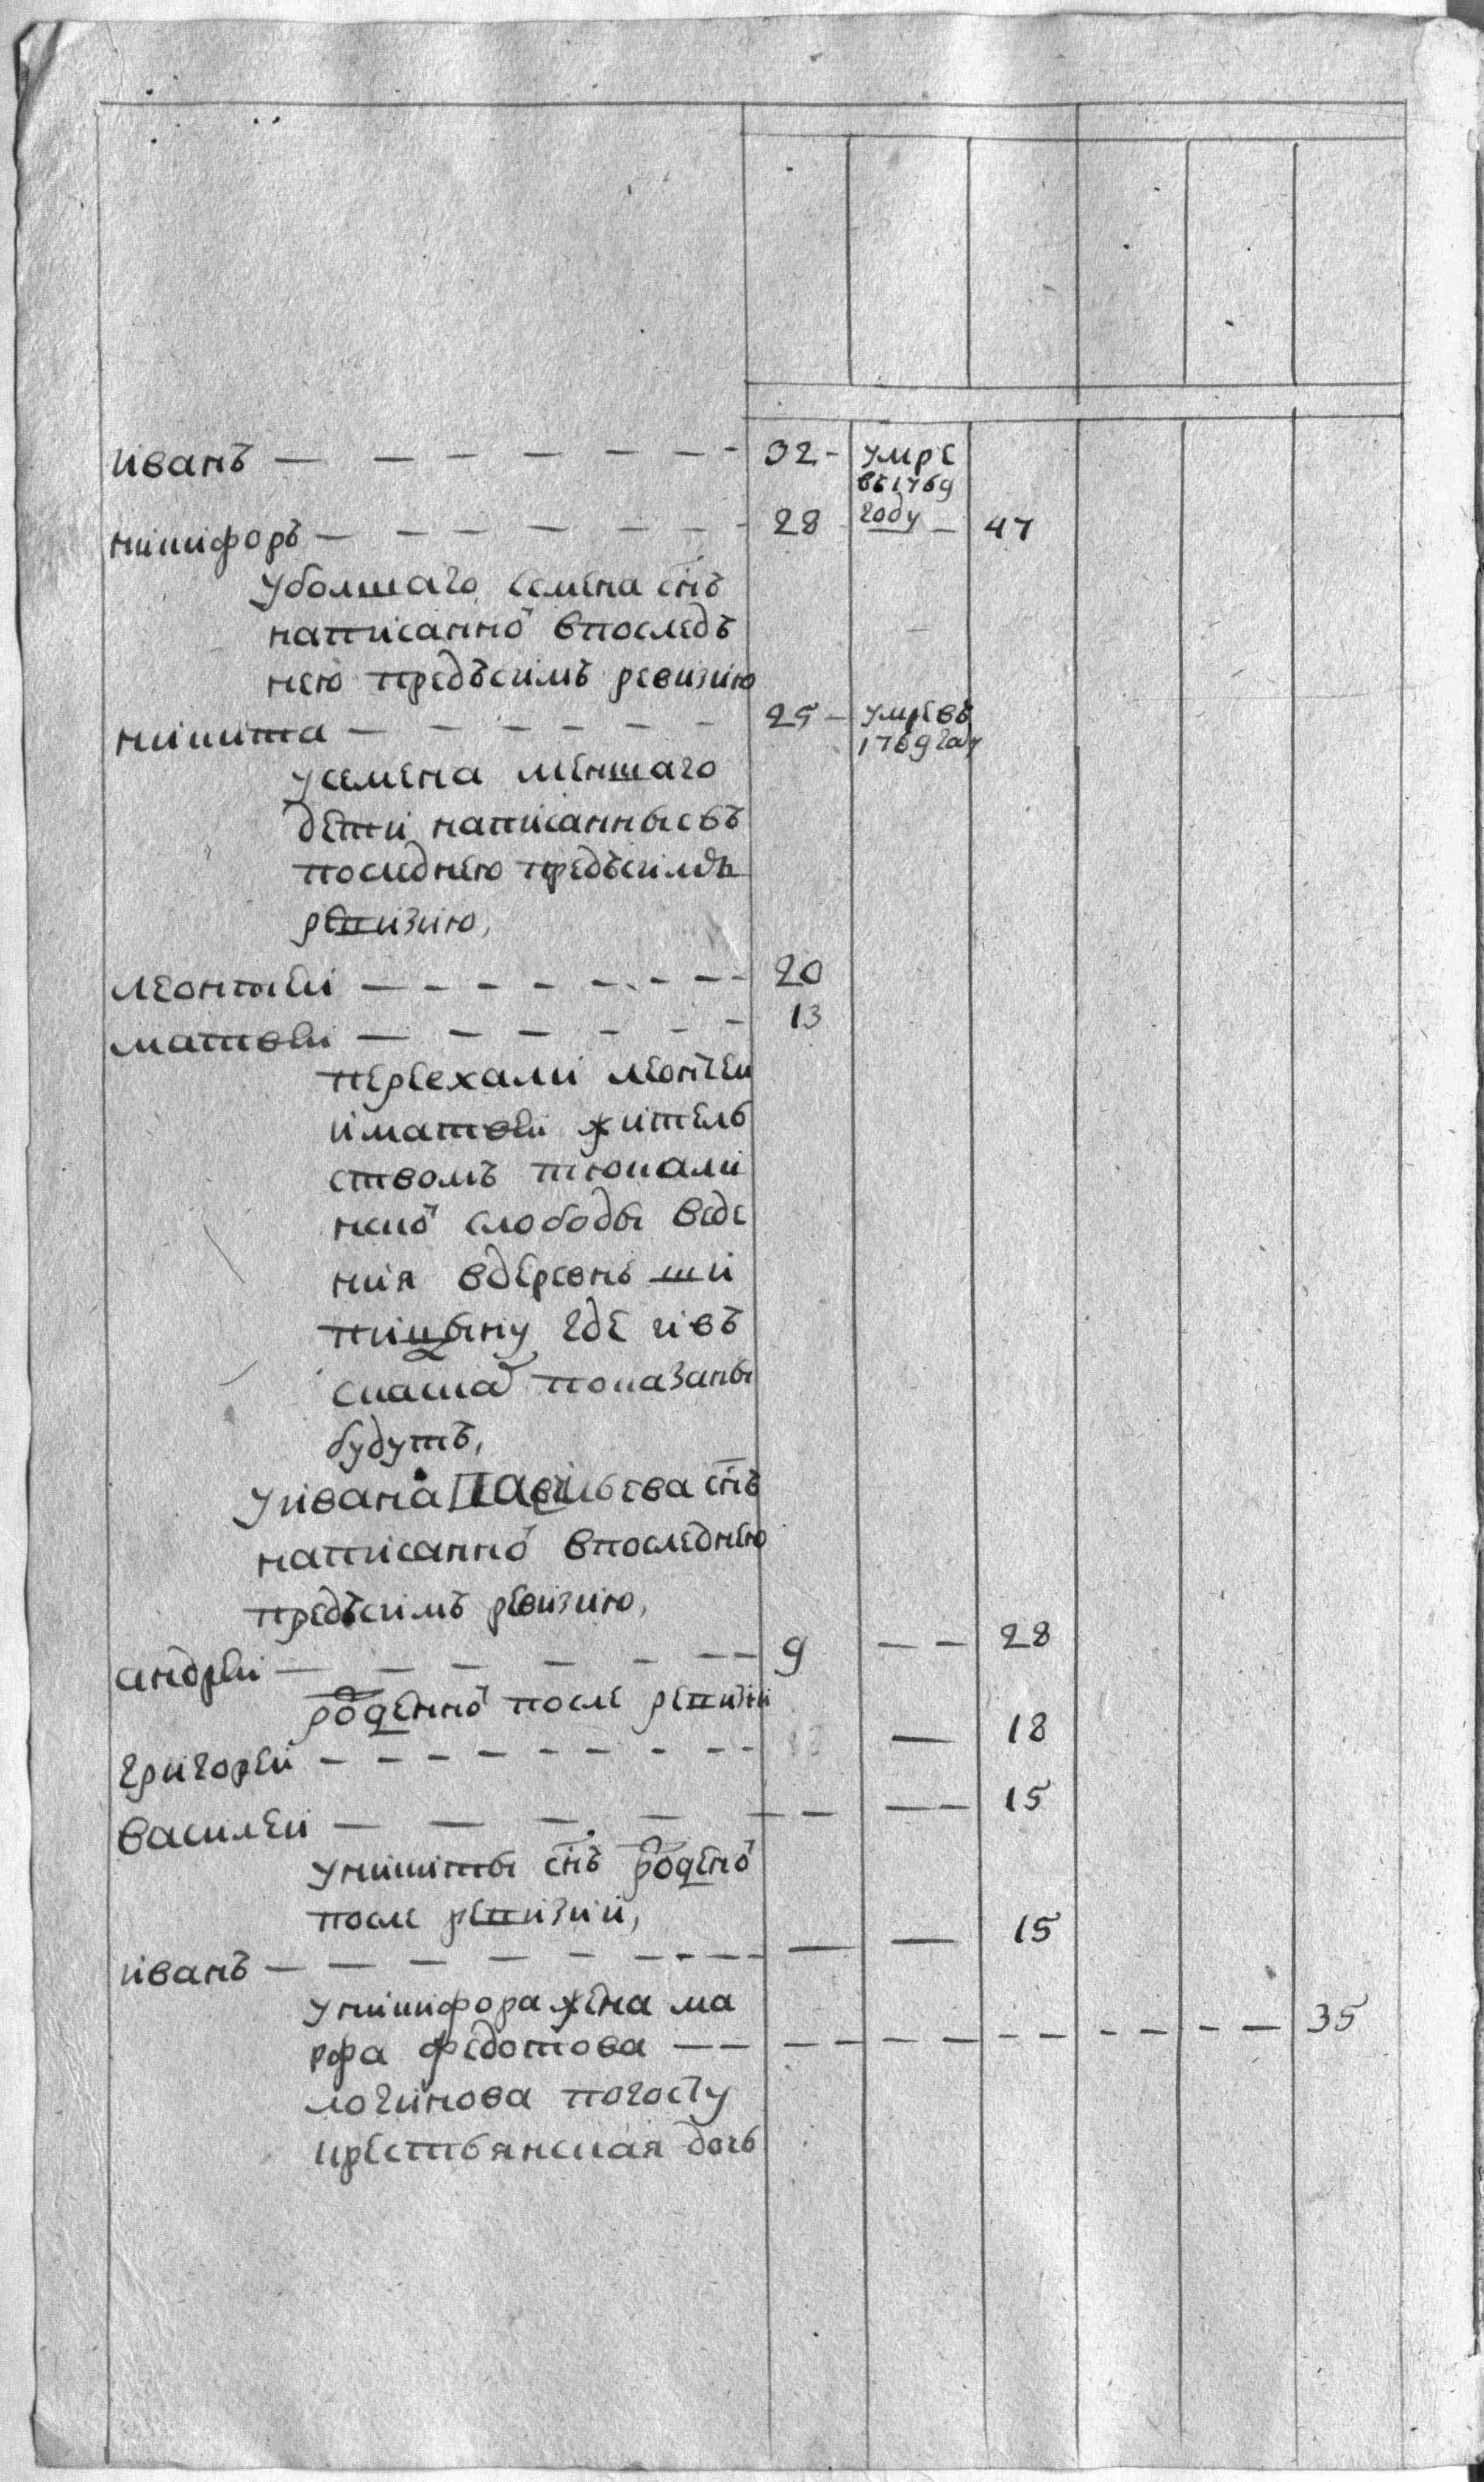 иванъ — — — — — — - 32 - умре
въ 1769
никифоръ — — — — — — - 28 году — 47
у болшаго семена снъ
написанной в последъ
нею предъ симъ ревизию
никита — — — — — — 25 — умре въ
1769 году
у семена меншаго
дети написанные въ
последнею предъ симъ
ревизию,
леонтей — — — — — — — - 20
матвей — — — — — — - 13
переехали леонтей
и матвей житель
ством тюкали
нской слободы веде
ния в деревнь ши
пицыну где и въ
сказка показаны
будутъ,
у ивана васильева снъ
написанной в последнею
предъ симъ ревизию,
андрей — — — — — — — 9 — — 28
рожденной после ревизии
григорей — — — — — — — — — 18
василей — — — — — — — — 15
у никиты снъ рожденой
после ревизии,
иванъ — — — — — — — — — — 15
у никифора жена ма
рфа федотова — — — — — — — — — — — — 35
логинова погосту
крестьянская дочь